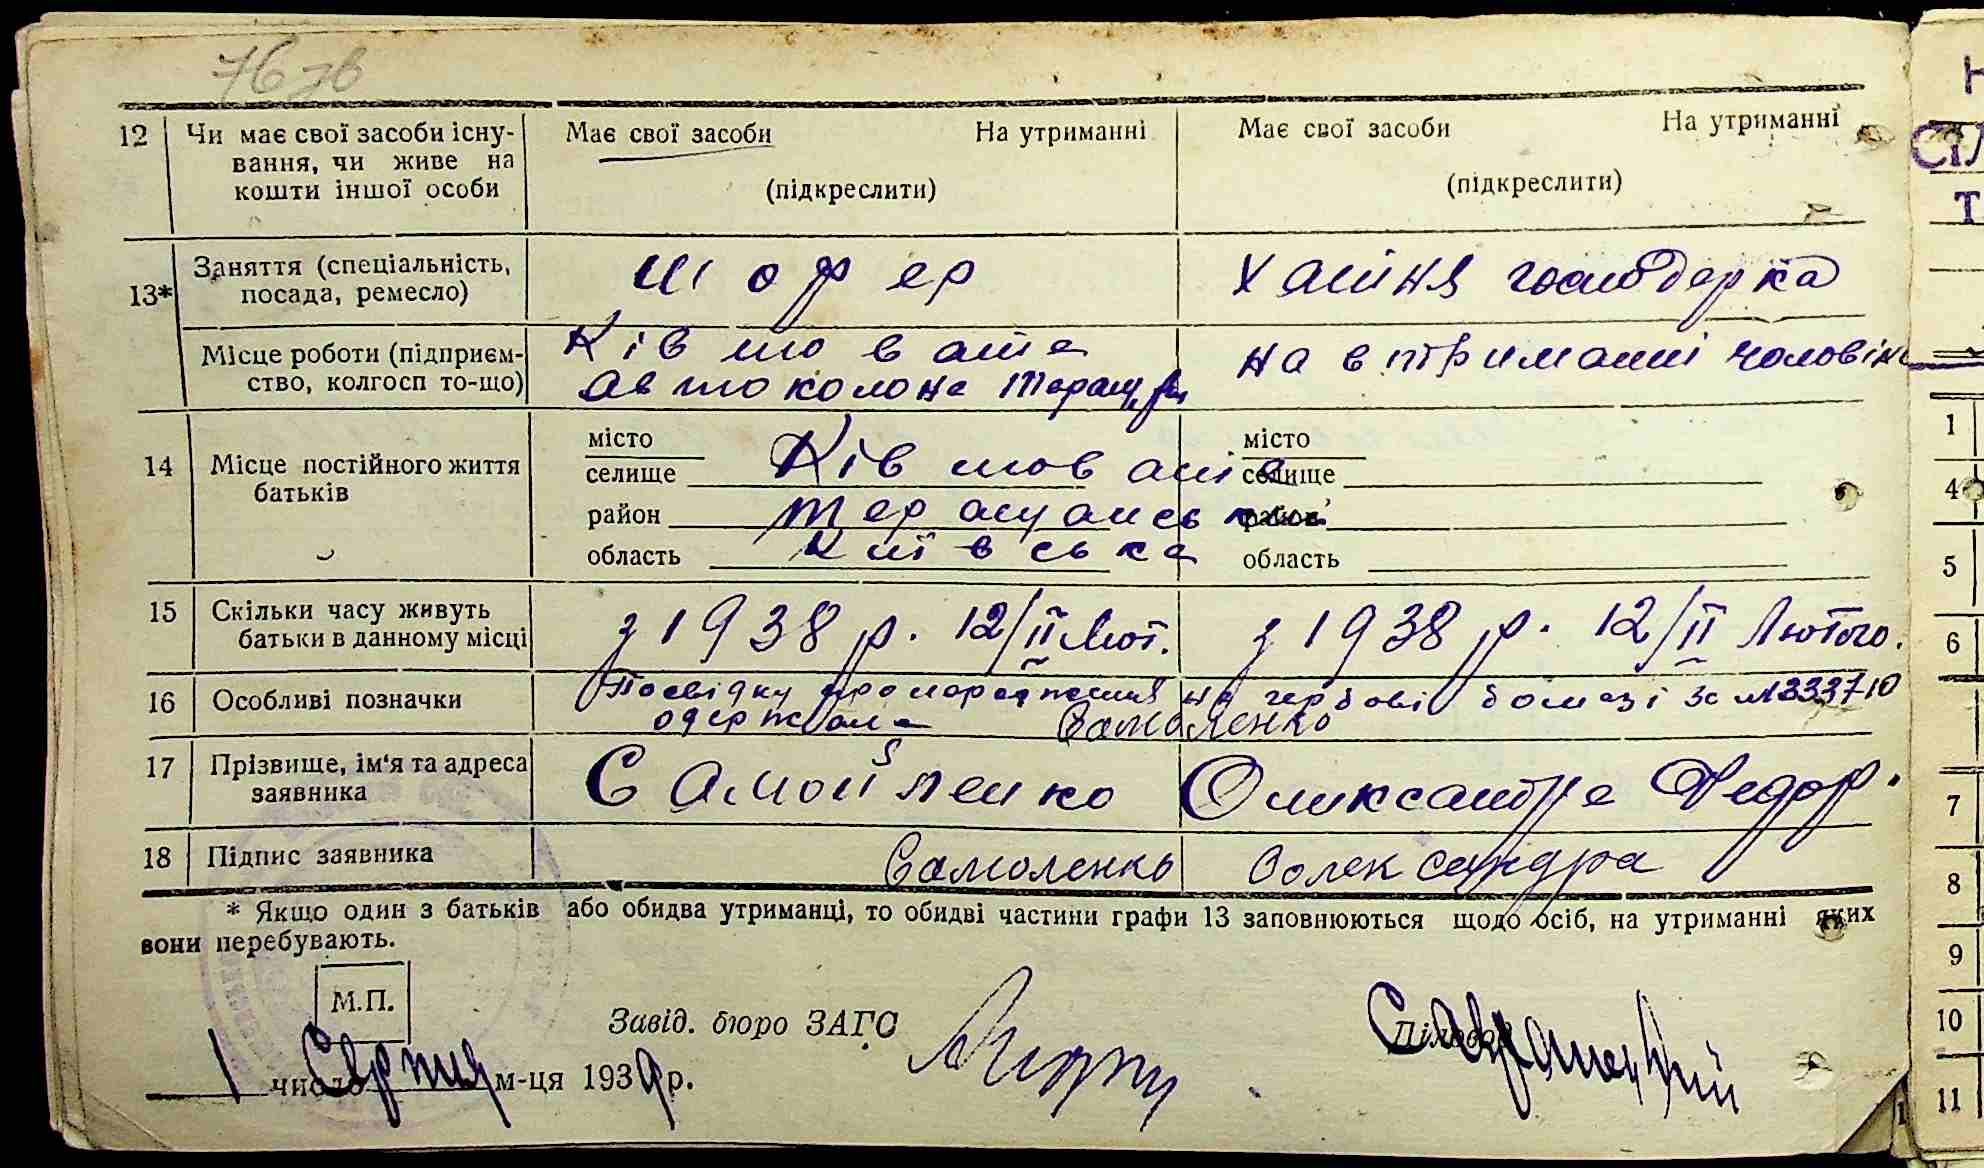 76 зв
12 Чи має свої засоби існу- Має свої засоби На утриманні Має свої засоби На утриманні
вання, чи живе на
кошти іншої особи (підкреслити) (підкреслити)
13* Заняття (спеціальність, Шофер Хатня господарка
посада, ремесло)
Місце роботи (підприєм- Ківшовата на втриманні чоловіка
ство, колгосп то-що) автоколона Таращ.
14 Місце постійного життя
батьків
місто місто
селище Ківшовата селище
район Таращанський район
область Київська область
15 Скільки часу живуть з 1938 р. 12/ІІ Лют. з 1938 р. 12/ІІ Лютого.
батьки в данному місці
16 Особливі позначки Посвідку про народження на гербові бомазі за №333710
одержала Самоленко
17 Прізвище, ім'я та адреса Самойленко Оликсандра Федор.
заявника
18 Підпис заявника Самоленко Олександра
* Якщо один з батьків або обидва утриманці, то обидві частини графи 13 заповнюються щодо осіб, на утриманні яких
вони перебувають.
М.П.
Завід. бюро ЗАГС Діловод
1 число Серпня м-ця 1939 р.
Н
СІЛ
Т
1
4
5
6
7
8
9
10
11